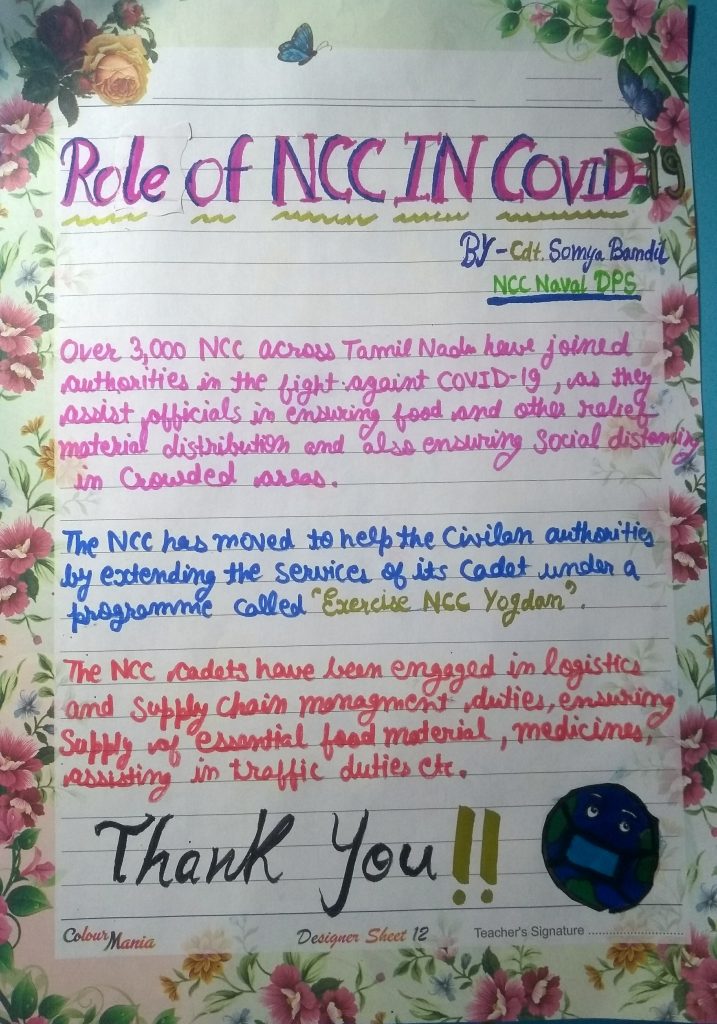 Role of NCC IN COVID-19
BY - Cdt. Somya Bamdil
NCC Naval DPS
Over 3,000 NCC across Tamil Nadu have joined
authorities in the fight againt COVID-19, as they
assist officials in ensuring food and other relief
material distribution and also ensuring social distancing
in Crowded areas.
The NCC has moved to help the Civilan authorities
by extending the services of its Cadet under a
programme called "Exercise NCC Yogdan".
The NCC cadets have been engaged in logistics
and supply chain managment duties, ensuring
supply of essential food material, medicines,
assisting in traffic duties etc.
Thank You!!
Colour Mania
Designer Sheet 12
Teacher's Signature ................................